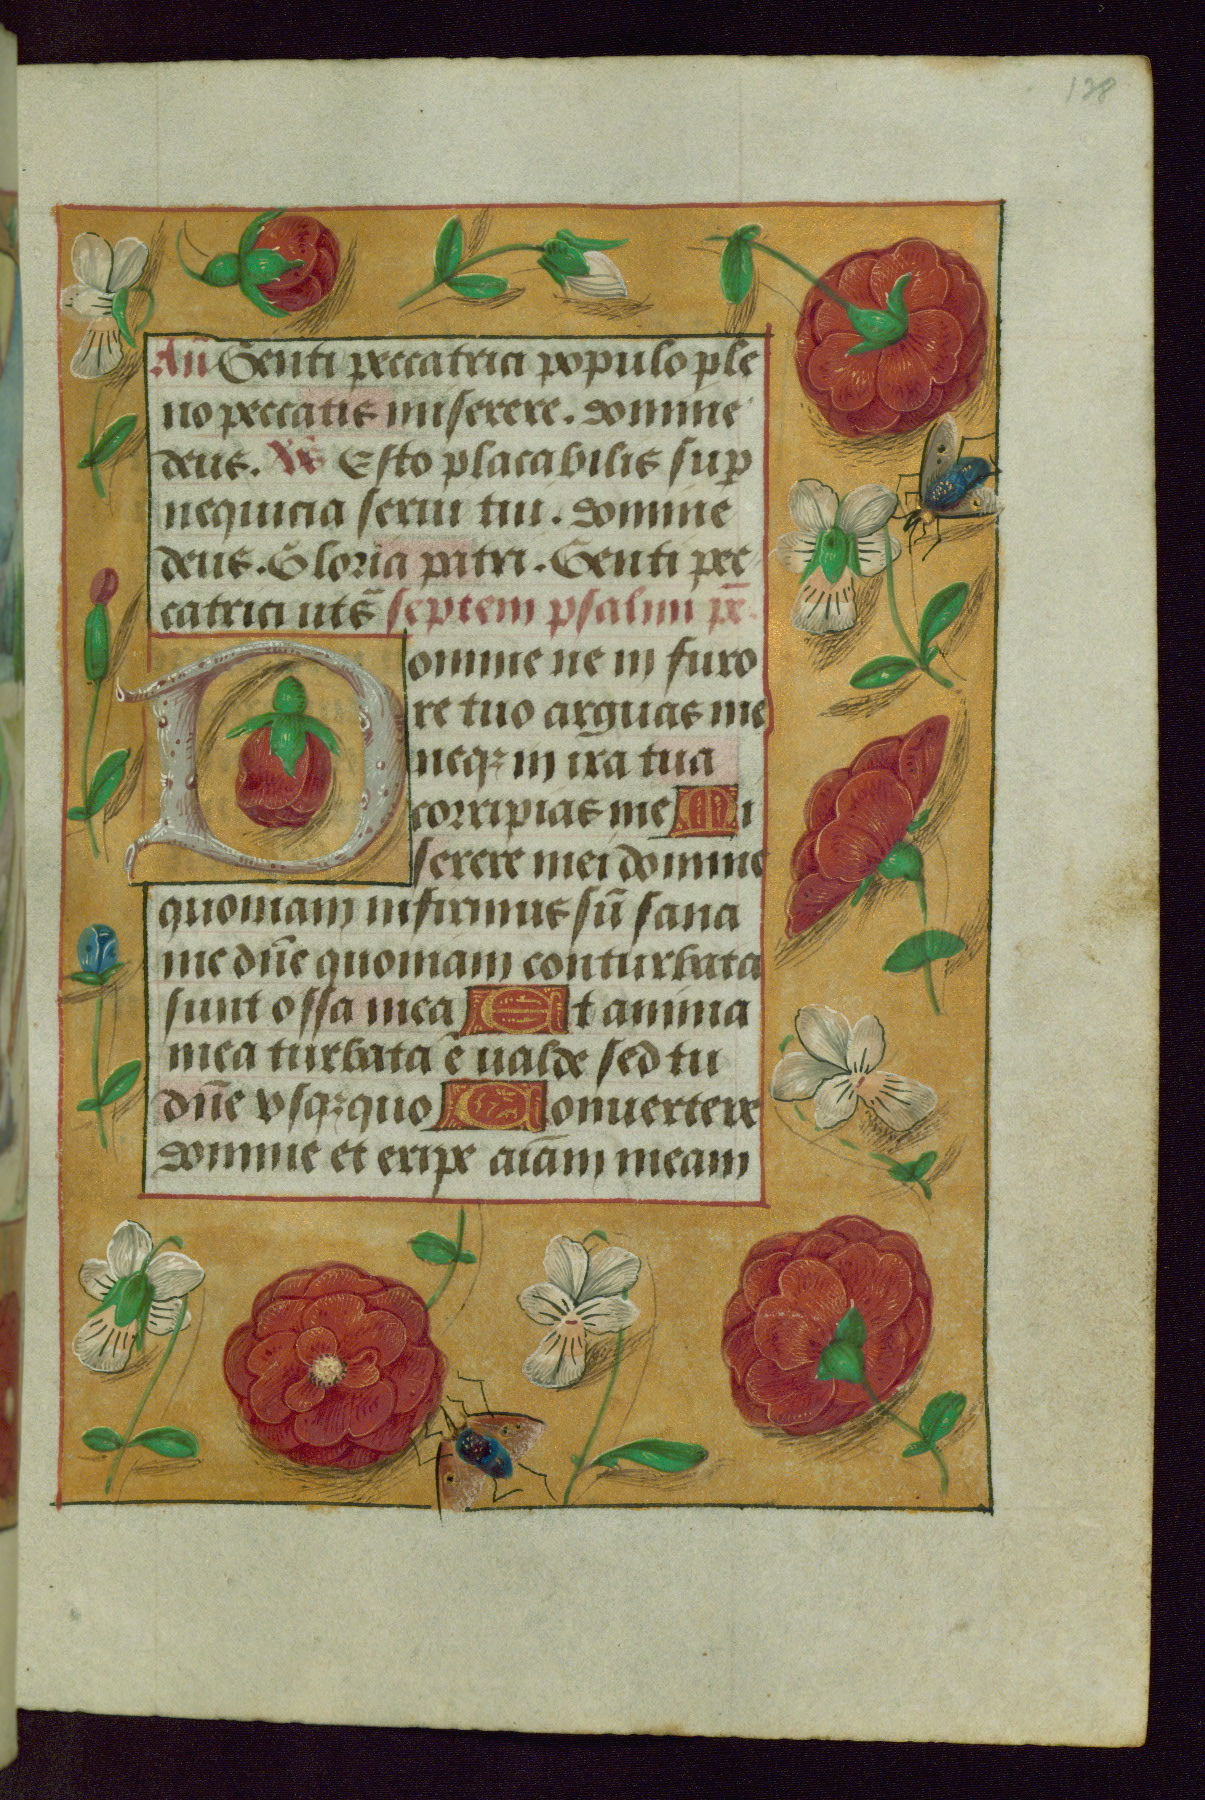 138
Añ Genti peccatrici populo ple
no peccatis miserere. domine
deus. Ps Esto placabilis sup
nequicia serui tui. domine
deus. Gloria patri. Genti pec-
catrici uts̄ septem psalmi pē.
Domine ne in furo
re tuo arguas me
neqꝫ in ira tua
corripias me Mi
serere mei domine
quoniam infirmus sū sana
me dn̄e quoniam conturbata
sunt ossa mea Et anima
mea turbata e ualde sed tu
dn̄e vsqꝫquo Conuertere
domine et eripe aīam meam